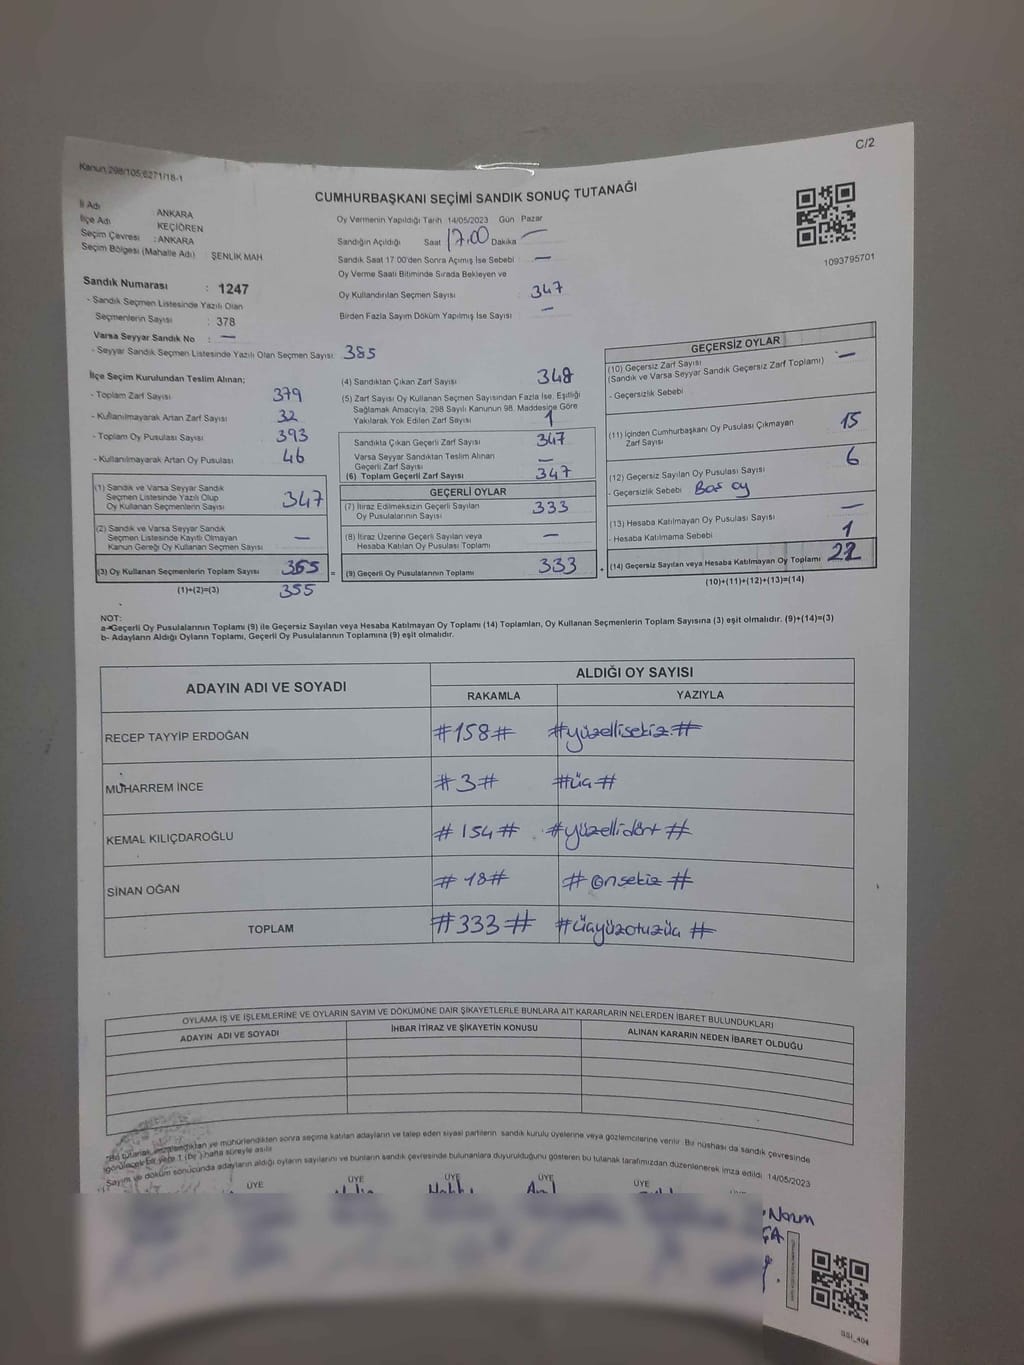 C/2
Kanun:298/105;6271/18-1
CUMHURBAŞKANI SEÇİMİ SANDIK SONUÇ TUTANAĞI
İl Adı ANKARA
İlçe Adı KEÇİÖREN
Seçim Çevresi :ANKARA
Seçim Bölgesi (Mahalle Adı) ŞENLİK MAH
Sandık Numarası : 1247
- Sandık Seçmen Listesinde Yazılı Olan
Seçmenlerin Sayısı : 378
Varsa Seyyar Sandık No : —
- Seyyar Sandık Seçmen Listesinde Yazılı Olan Seçmen Sayısı: 385
Oy Vermenin Yapıldığı Tarih 14/05/2023 Gün Pazar
Sandığın Açıldığı Saat 17.00 Dakika —
Sandık Saat 17.00'den Sonra Açımış İse Sebebi : —
Oy Verme Saati Bitiminde Sırada Bekleyen ve
Oy Kullandırılan Seçmen Sayısı : 347
Birden Fazla Sayım Döküm Yapılmış İse Sayısı : —
1093795701
İlçe Seçim Kurulundan Teslim Alınan;
- Toplam Zarf Sayısı : 379
- Kullanılmayarak Artan Zarf Sayısı : 32
- Toplam Oy Pusulası Sayısı : 393
- Kullanılmayarak Artan Oy Pusulası : 46
(1) Sandık ve Varsa Seyyar Sandık
Seçmen Listesinde Yazılı Olup
Oy Kullanan Seçmenlerin Sayısı : 347
(2) Sandık ve Varsa Seyyar Sandık
Seçmen Listesinde Kayıtlı Olmayan
Kanun Gereği Oy Kullanan Seçmen Sayısı : —
(3) Oy Kullanan Seçmenlerin Toplam Sayısı : 355 =
(1)+(2)=(3) 355
(4) Sandıktan Çıkan Zarf Sayısı : 348
(5) Zarf Sayısı Oy Kullanan Seçmen Sayısından Fazla İse, Eşitliği
Sağlamak Amacıyla, 298 Sayılı Kanunun 98. Maddesine Göre
Yakılarak Yok Edilen Zarf Sayısı : 1
Sandıkta Çıkan Geçerli Zarf Sayısı : 347
Varsa Seyyar Sandıktan Teslim Alınan
Geçerli Zarf Sayısı : —
(6) Toplam Geçerli Zarf Sayısı : 347
GEÇERLİ OYLAR
(7) İtiraz Edilmeksizin Geçerli Sayılan
Oy Pusulalarının Sayısı : 333
(8) İtiraz Üzerine Geçerli Sayılan veya
Hesaba Katılan Oy Pusulası Toplamı : —
(9) Geçerli Oy Pusulalarının Toplamı : 333 +
GEÇERSİZ OYLAR
(10) Geçersiz Zarf Sayısı : —
(Sandık ve Varsa Seyyar Sandık Geçersiz Zarf Toplamı)
- Geçersizlik Sebebi :
(11) İçinden Cumhurbaşkanı Oy Pusulası Çıkmayan
Zarf Sayısı 15
(12) Geçersiz Sayılan Oy Pusulası Sayısı : 6
- Geçersizlik Sebebi : Boş oy
(13) Hesaba Katılmayan Oy Pusulası Sayısı : —
- Hesaba Katılmama Sebebi : 1
(14) Geçersiz Sayılan veya Hesaba Katılmayan Oy Toplamı : 22
(10)+(11)+(12)+(13)=(14)
NOT:
a-Geçerli Oy Pusulalarının Toplamı (9) ile Geçersiz Sayılan veya Hesaba Katılmayan Oy Toplamı (14) Toplamları, Oy Kullanan Seçmenlerin Toplam Sayısına (3) eşit olmalıdır. (9)+(14)=(3)
b- Adayların Aldığı Oyların Toplamı, Geçerli Oy Pusulalarının Toplamına (9) eşit olmalıdır.
ADAYIN ADI VE SOYADI ALDIĞI OY SAYISI
RAKAMLA YAZIYLA
RECEP TAYYİP ERDOĞAN #158# #yüzellisekiz#
MUHARREM İNCE #3# #üç#
KEMAL KILIÇDAROĞLU #154# #yüzellidört#
SİNAN OĞAN #18# #onsekiz#
TOPLAM #333# #üçyüzotuzüç#
OYLAMA İŞ VE İŞLEMLERİNE VE OYLARIN SAYIM VE DÖKÜMÜNE DAİR ŞİKAYETLERLE BUNLARA AİT KARARLARIN NELERDEN İBARET BULUNDUKLARI
ADAYIN ADI VE SOYADI İHBAR İTİRAZ VE ŞİKAYETİN KONUSU ALINAN KARARIN NEDEN İBARET OLDUĞU
*Bu tutanak imzalandıktan ve mühürlendikten sonra seçime katılan adayların ve talep eden siyasi partilerin sandık kurulu üyelerine veya gözlemcilerine verilir. Bir nüshası da sandık çevresinde
görülecek bir yere 1 (bir) hafta süreyle asılır
Sayım ve döküm sonucunda adayların aldığı oyların sayılarını ve bunların sandık çevresinde bulunanlara duyurulduğunu gösteren bu tutanak tarafımızdan düzenlenerek imza edildi 14/05/2023
ÜYE ÜYE ÜYE ÜYE ÜYE